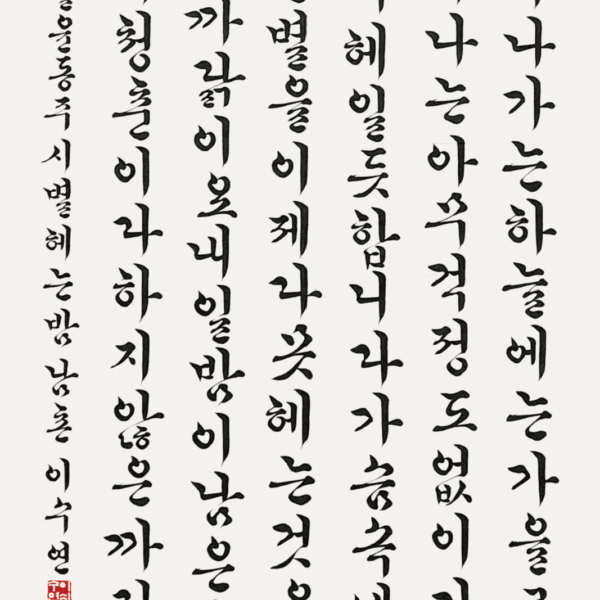 나가는하늘에는가을
나는아무걱정도없이
혜일듯합니다가슴속
별을이제다못혜는것
까닭이오내일밤이남은
청춘이다하지않은까
윤동주시별혜는밤 남촌 이수연